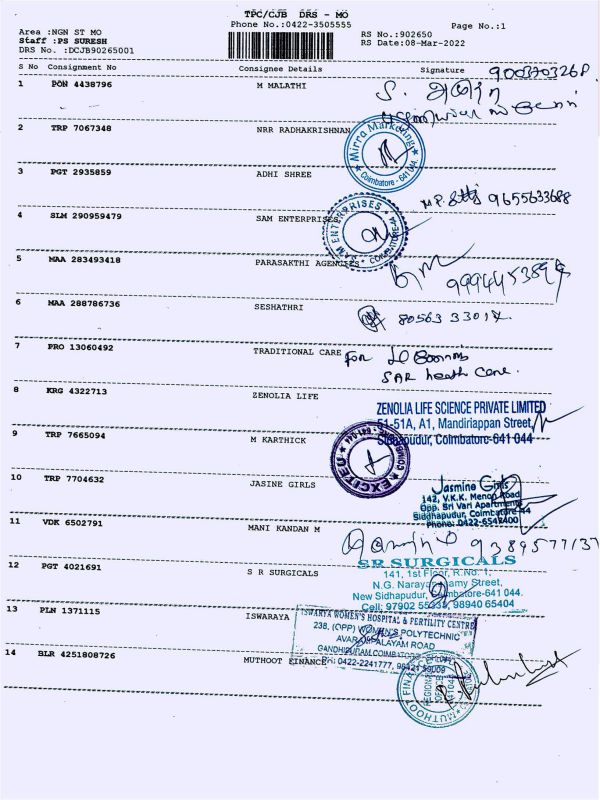 TPC/CJB DRS - MO
Phone No.:0422-3505555
Page No.:1
Area :NGN ST MO
Staff :PS SURESH
DRS No. :DCJB90265001
RS No.:902650
RS Date:08-Mar-2022
S No Consignment No Consignee Details Signature
1 PON 4438796 M MALATHI
2 TRP 7067348 NRR RADHAKRISHNAN
Mirra Marketing
Coimbatore - 641 044.
3 PGT 2935859 ADHI SHREE
9655633688
4 SLM 290959479 SAM ENTERPRISES
SAM ENTERPRISES
5 MAA 283493418 PARASAKTHI AGENCIES
6 MAA 288786736 SESHATHRI
80563 33017.
7 PRO 13060492 TRADITIONAL CARE
For
SAR heath Care.
8 KRG 4322713 ZENOLIA LIFE
ZENOLIA LIFE SCIENCE PRIVATE LIMITED
51-51A, A1, Mandiriappan Street,
Sidhapudur, Coimbatore-641 044
9 TRP 7665094 M KARTHICK
EXCITED
10 TRP 7704632 JASINE GIRLS
Jasmine Girls
142, V.K.K. Menon Road
Opp. Sri Vari Apartments
Sidhapudur, Coimbatore-44
Phone: 0422-6547400
11 VDK 6502791 MANI KANDAN M
9389577137
12 PGT 4021691 S R SURGICALS
SR SURGICALS
141, 1st Floor, R.No. 1,
N.G. Narayanasamy Street,
New Sidhapudur, Coimbatore-641 044.
Cell: 97902 55233, 98940 65404
13 PLN 1371115 ISWARAYA
ISWARYA WOMEN'S HOSPITAL & FERTILITY CENTRE
238, (OPP) WOMEN'S POLYTECHNIC
AVARAMPALAYAM ROAD
GANDHIPURAM, COIMBATORE
0422-2241777,
14 BLR 4251808726 MUTHOOT FINANCE
MUTHOOT FINANCE
REGIONAL OFFICE